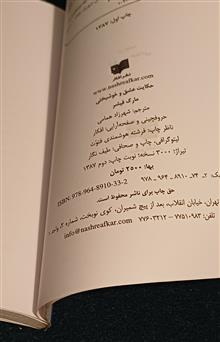 چاپ اول: ۱۳۸۷
نشر افکار
www.nashreafkar.com
حکایت عشق و خوشبختی
مارک فیشر
مترجم: شهرزاد همامی
حروفچینی و صفحه‌آرایی: افکار
ناظر چاپ: فرشته هوشمندی فتوت
لیتوگرافی، چاپ و صحافی: طیف نگار
تیراژ: ۳۰۰۰ نسخه؛ نوبت چاپ: دوم ۱۳۸۷
بها: ۲۵۰۰ تومان
۹۷۸ - ۹۶۴ - ۸۹۱۰ - ۳۳ - ۲
ISBN: 978-964-8910-33-2
حق چاپ برای ناشر محفوظ است.
تهران، خیابان انقلاب، بعد از پیچ شمیران، کوی نوبخت، شماره ۲، واحد
تلفن: ۷۷۵۱۰۹۸۳ - ۷۷۶۰۳۲۱۲
info@nashreafkar.com